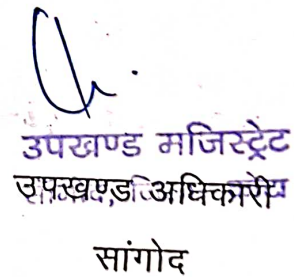 उपखण्ड मजिस्ट्रेट
उपखण्ड अधिकारी
सांगोद